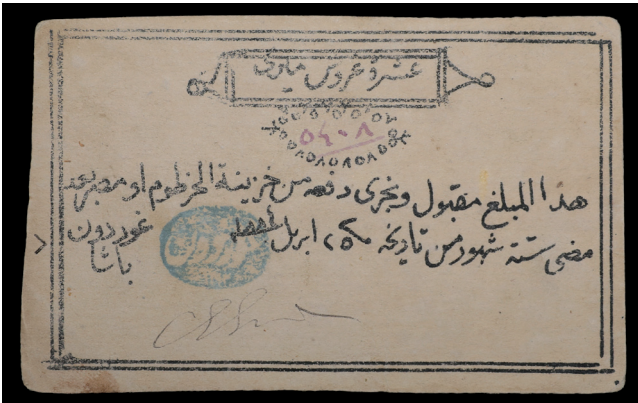 عشرة غروش
٥٤٠٨
هذا المبلغ مقبول ويجرى دفعه من خزينة الخرطوم او مصر بعد
مضى ستة شهور من تاريخه ٢٥ ابريل غوردون
باشا